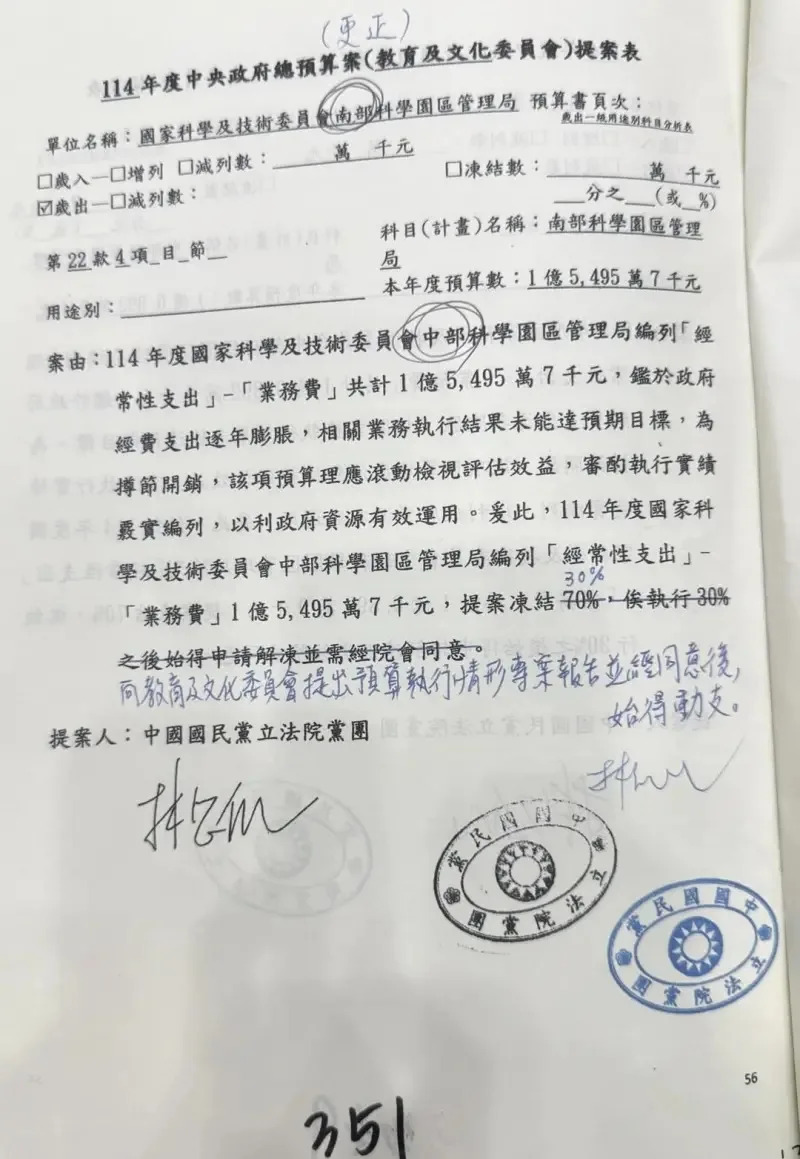 (更正)
114年度中央政府總預算案(教育及文化委員會)提案表
單位名稱：國家科學及技術委員會南部科學園區管理局 預算書頁次：
歲出一級用途別科目分析表
□歲入—□增列 □減列數：　　　萬　千元 □凍結數：　　　萬　千元
☑歲出—□減列數： __分之__(或_%)
第22款4項_目_節_ 科目(計畫)名稱：南部科學園區管理局
本年度預算數：1億5,495萬7千元
用途別：
案由：114年度國家科學及技術委員會中部科學園區管理局編列「經
常性支出」-「業務費」共計1億5,495萬7千元，鑑於政府
經費支出逐年膨脹，相關業務執行結果未能達預期目標，為
撙節開銷，該項預算理應滾動檢視評估效益，審酌執行實績
覈實編列，以利政府資源有效運用。爰此，114年度國家科
學及技術委員會中部科學園區管理局編列「經常性支出」-
30%
「業務費」1億5,495萬7千元，提案凍結70%，俟執行30%
之後始得申請解凍並需經院會同意。
向教育及文化委員會提出預算執行情形專案報告並經同意後，
始得動支。
提案人：中國國民黨立法院黨團
中國國民黨
立法院黨團
中國國民黨
立法院黨團
56
351